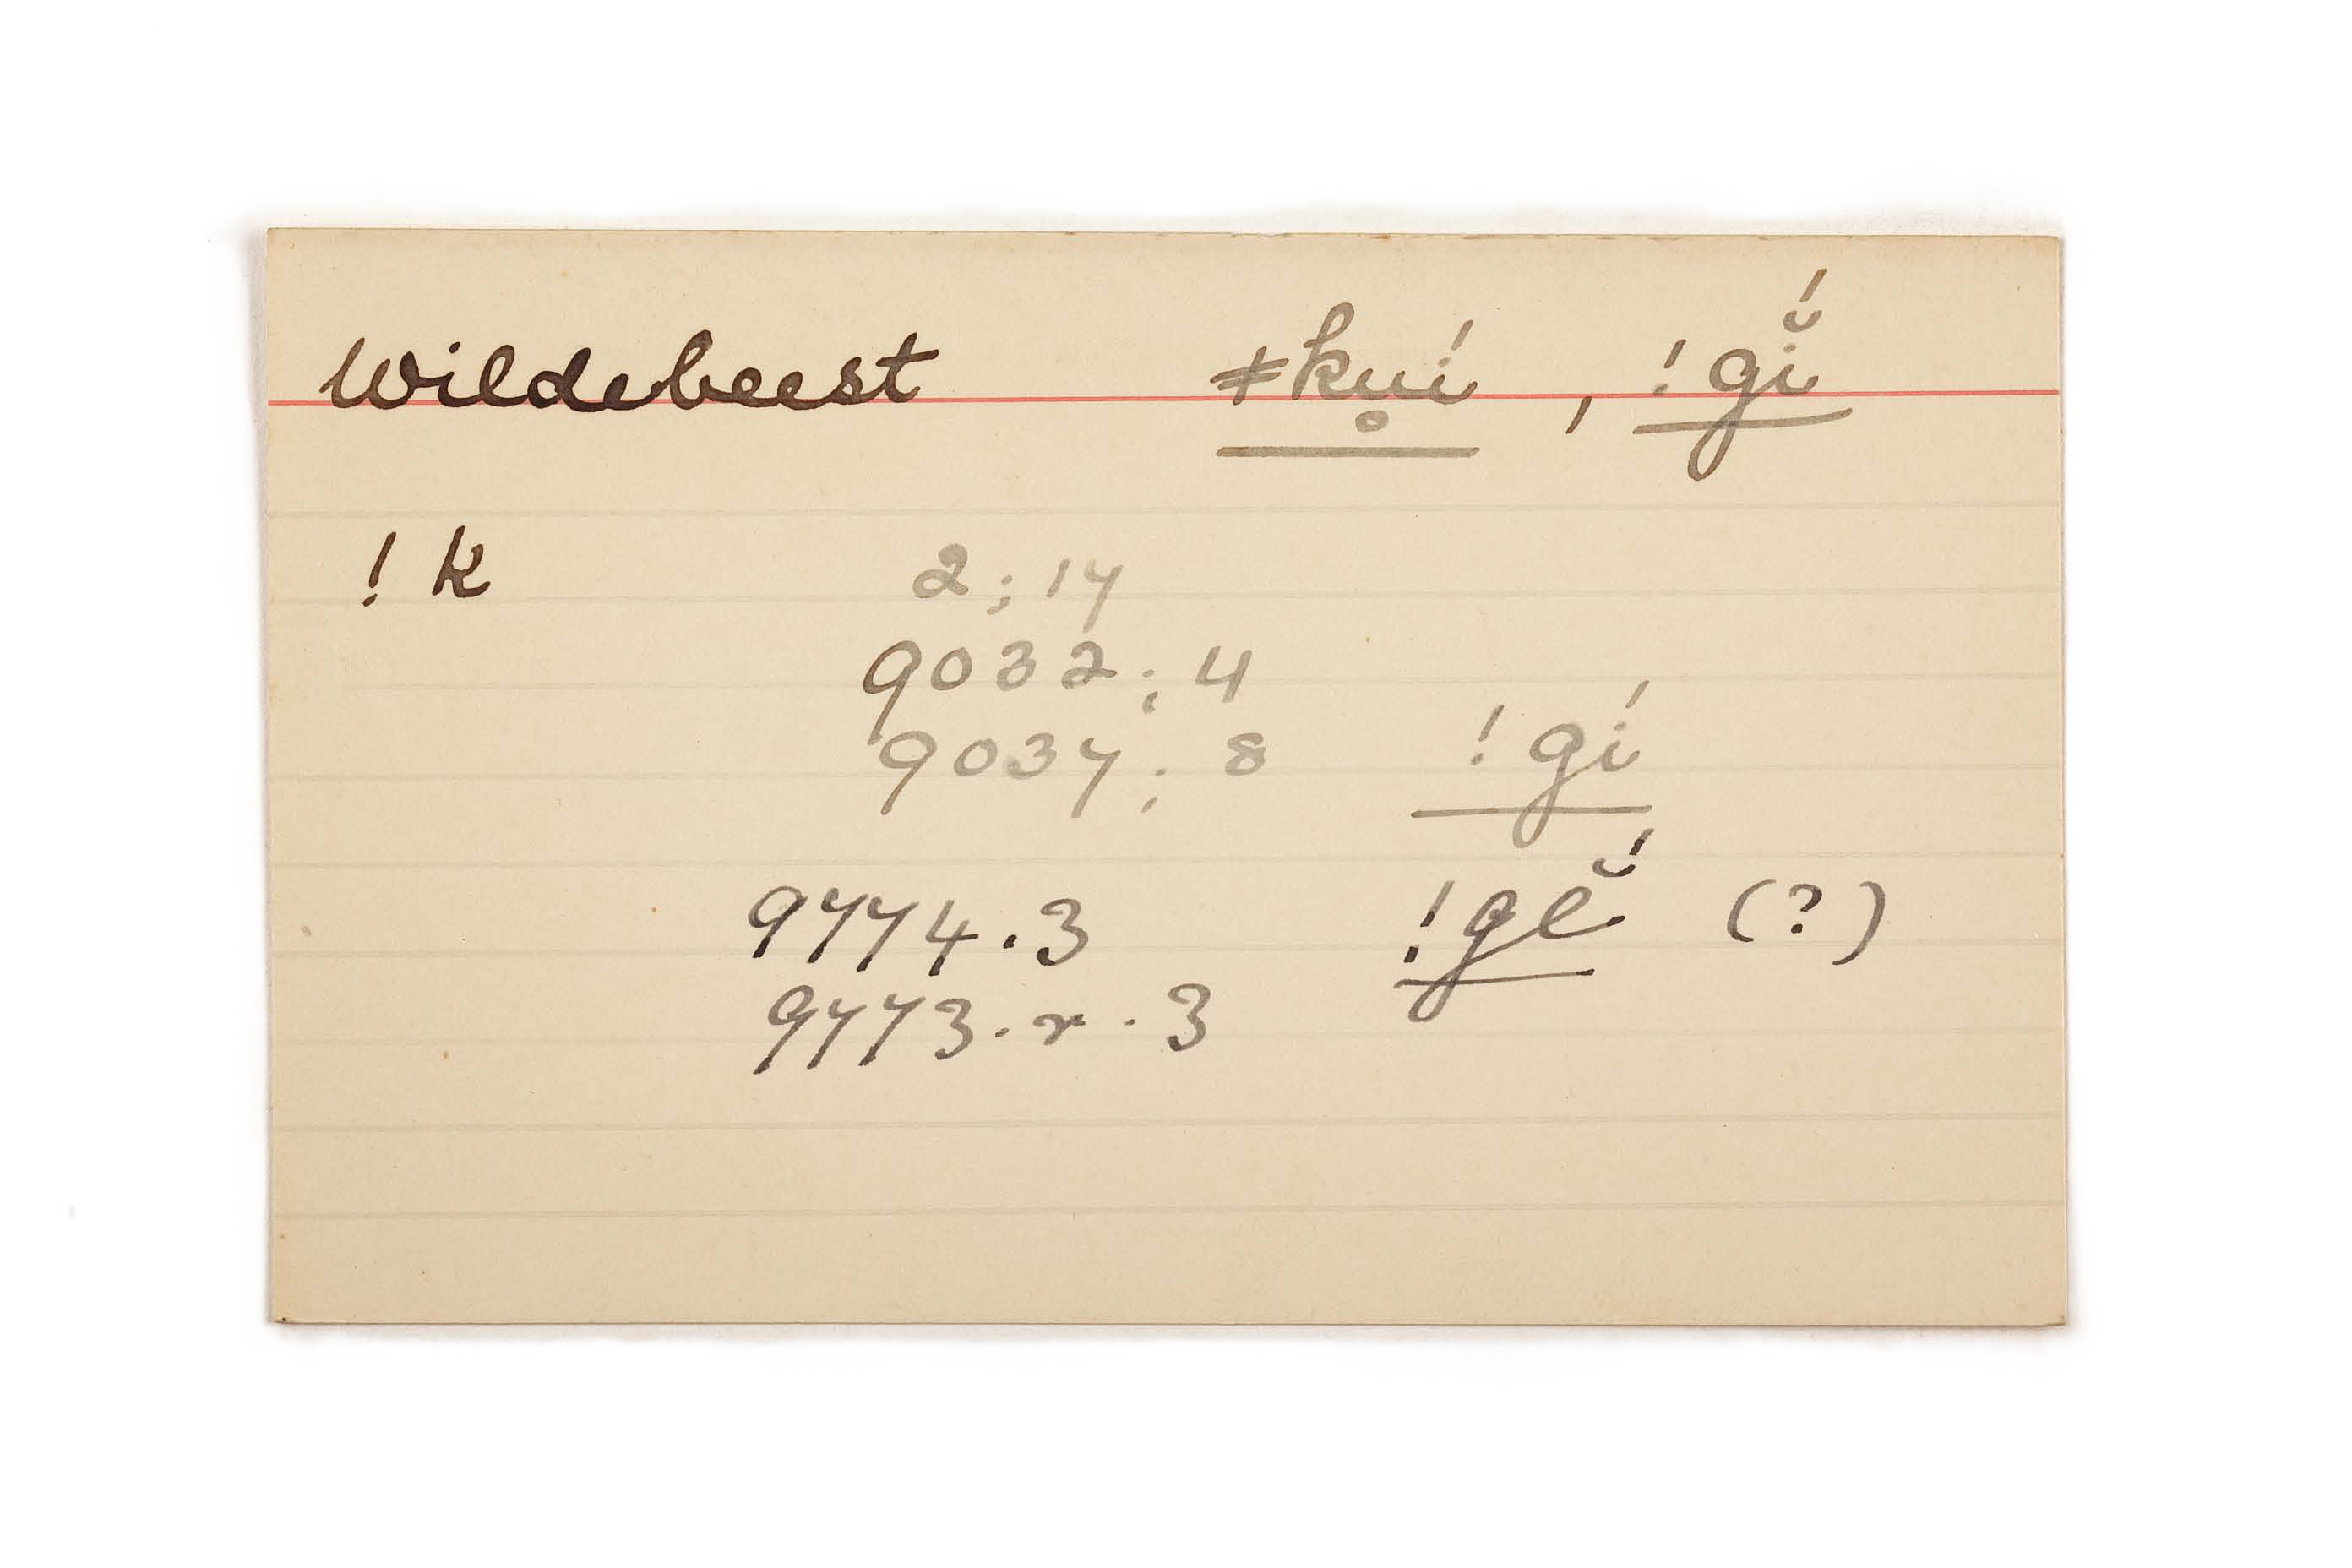 Wildebeest ǂku̥í , !gĭ́
!k 2; 17
9032; 4
9037; 8 !gí
9774.3 !gĕ́ (?)
9773.r.3